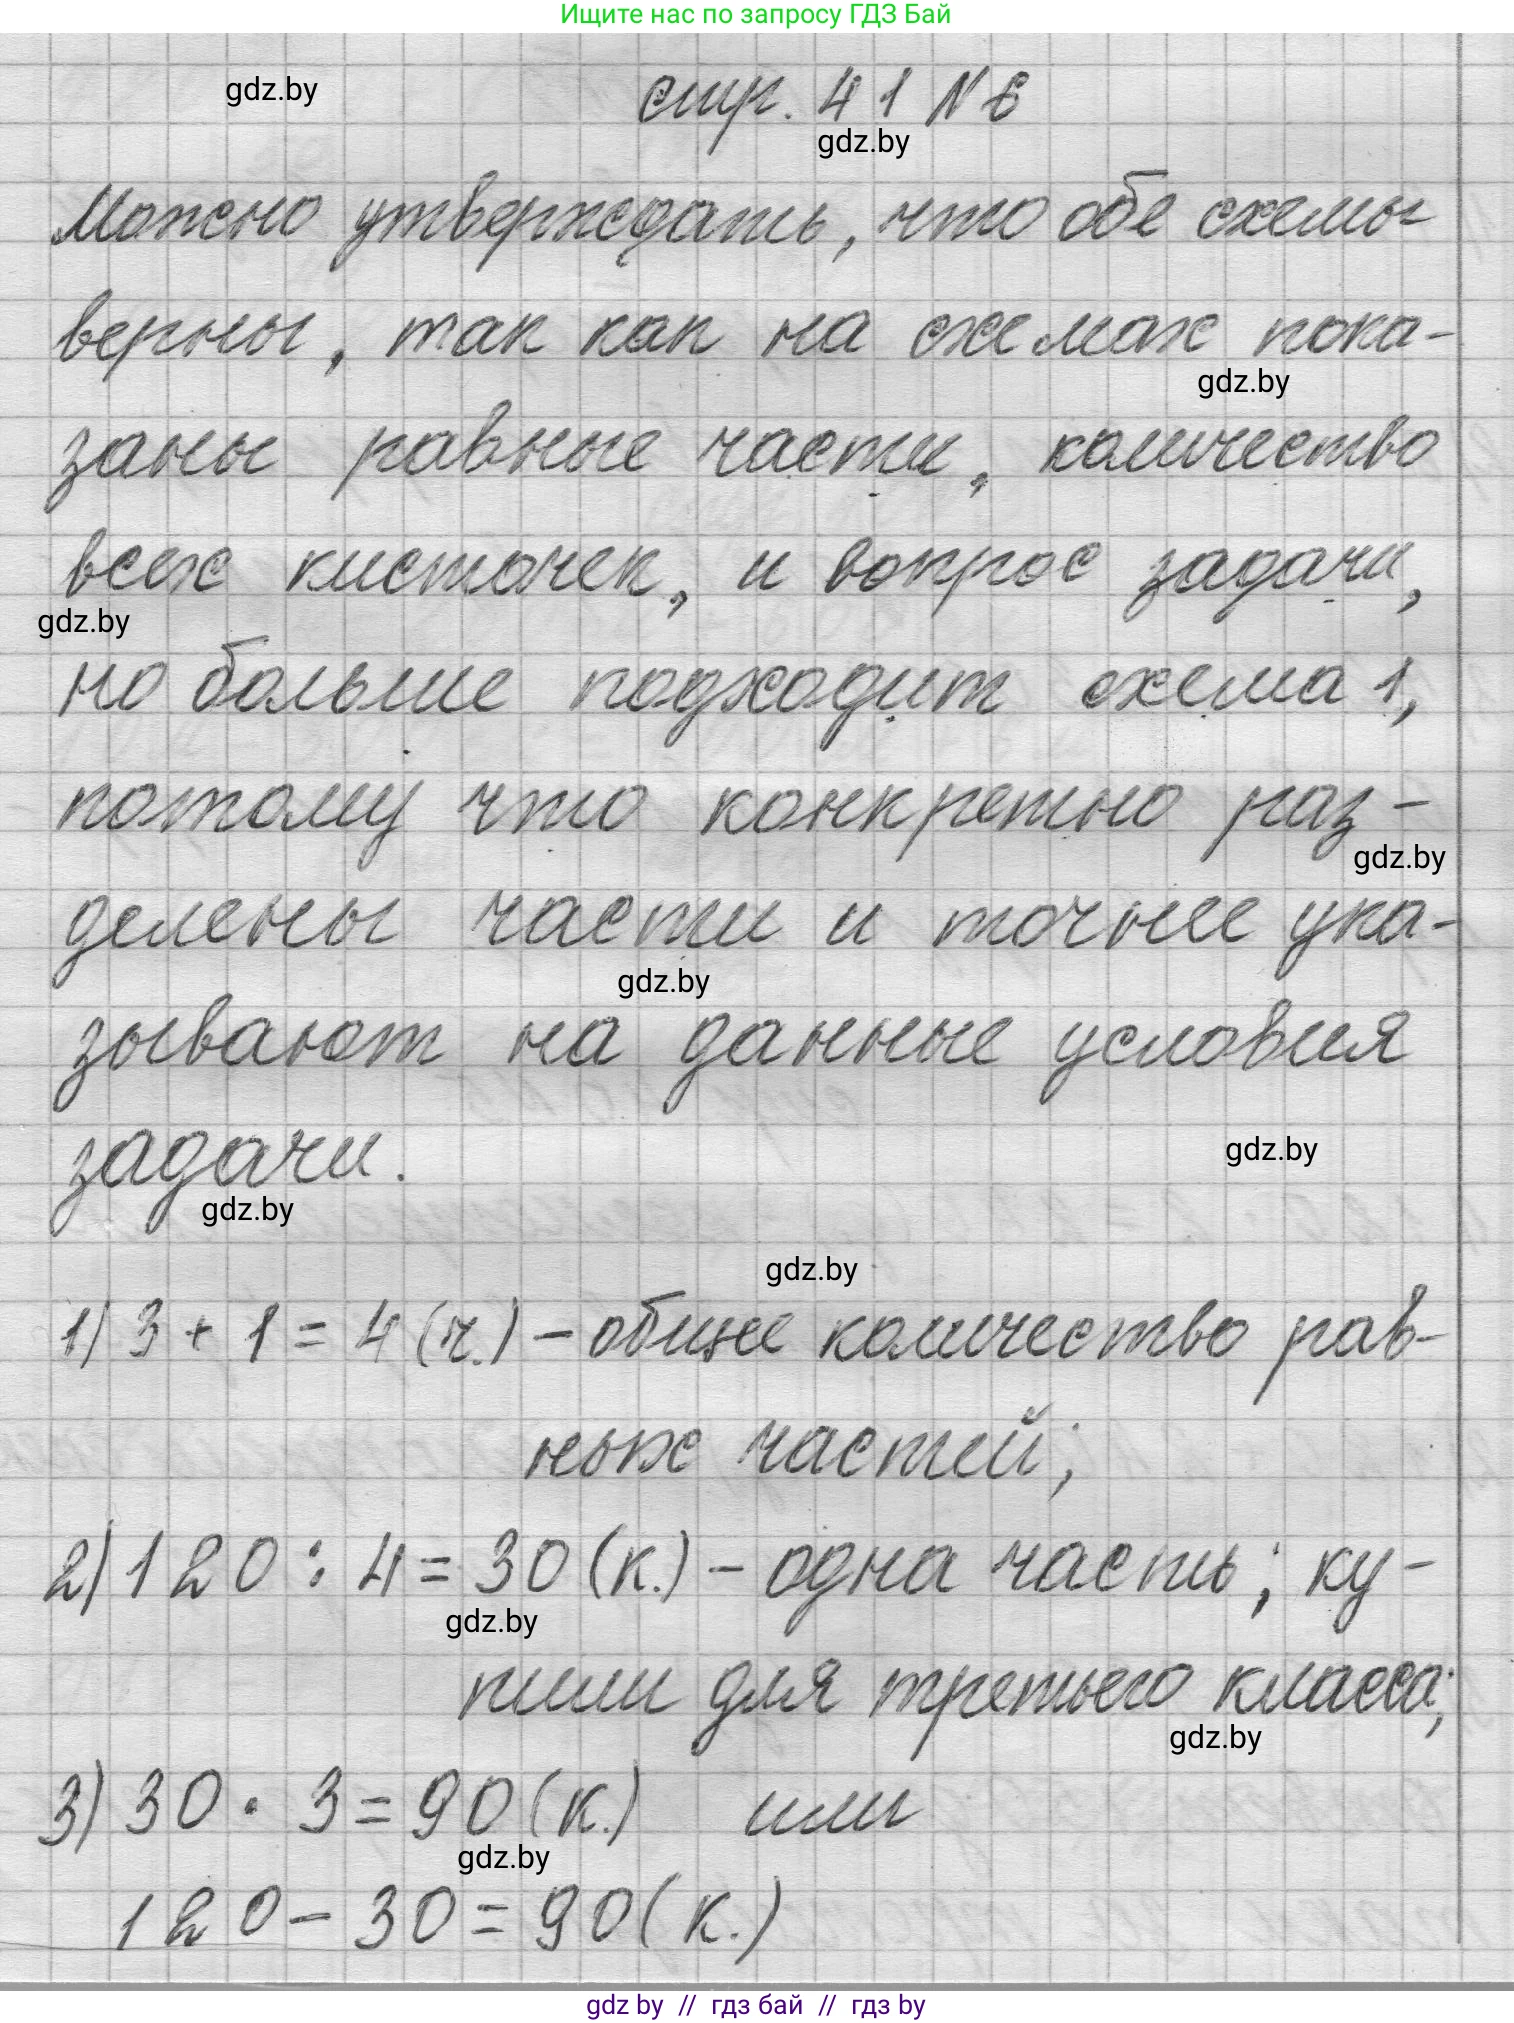 Ищите нас по запросу ГДЗ Бай
gdz.by
стр. 41 № 6
gdz.by
Можно утверждать, что обе схемы
верны, так как на схемах пока-
gdz.by
заны равные части, количество
всех кисточек, и вопрос задачи,
gdz.by
но больше подходит схема 1,
потому что конкретно раз-
gdz.by
делены части и точнее ука-
gdz.by
зывают на данные условия
задачи.
gdz.by
gdz.by
gdz.by
1) 3 + 1 = 4 (ч.) – общее количество рав-
ных частей;
2) 120 : 4 = 30 (к.) – одна часть; ку-
gdz.by
пили для третьего класса;
gdz.by
3) 30 · 3 = 90 (к.) или
gdz.by
120 – 30 = 90 (к.)
gdz by // гдз бай // гдз by